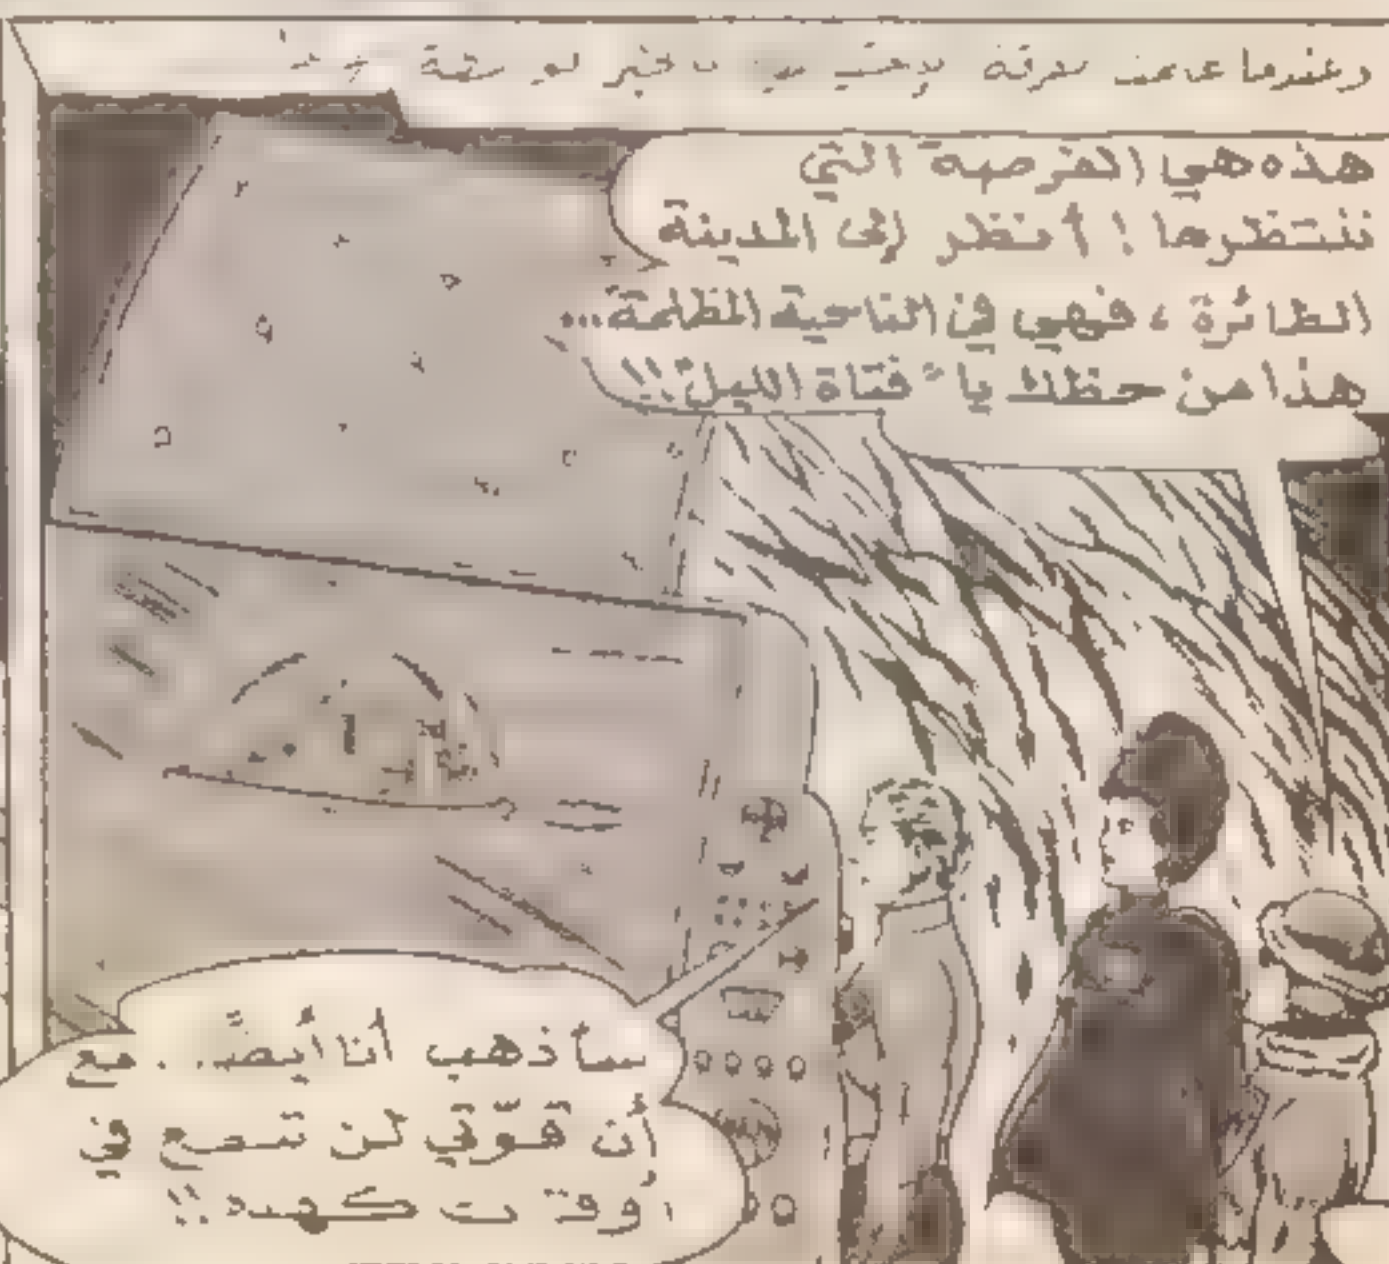 وعندما
هذه هي الفرصة التي
ننتظرها ! أنظر إلى المدينة
الطائرة ، فهي في الناحية المظلمة...
هذا من حظك يا " فتاة الليل"!!
سأذهب أنا أيضـ.. مع
أن قوّتي لن تنفع في
أوقات كهذه !!